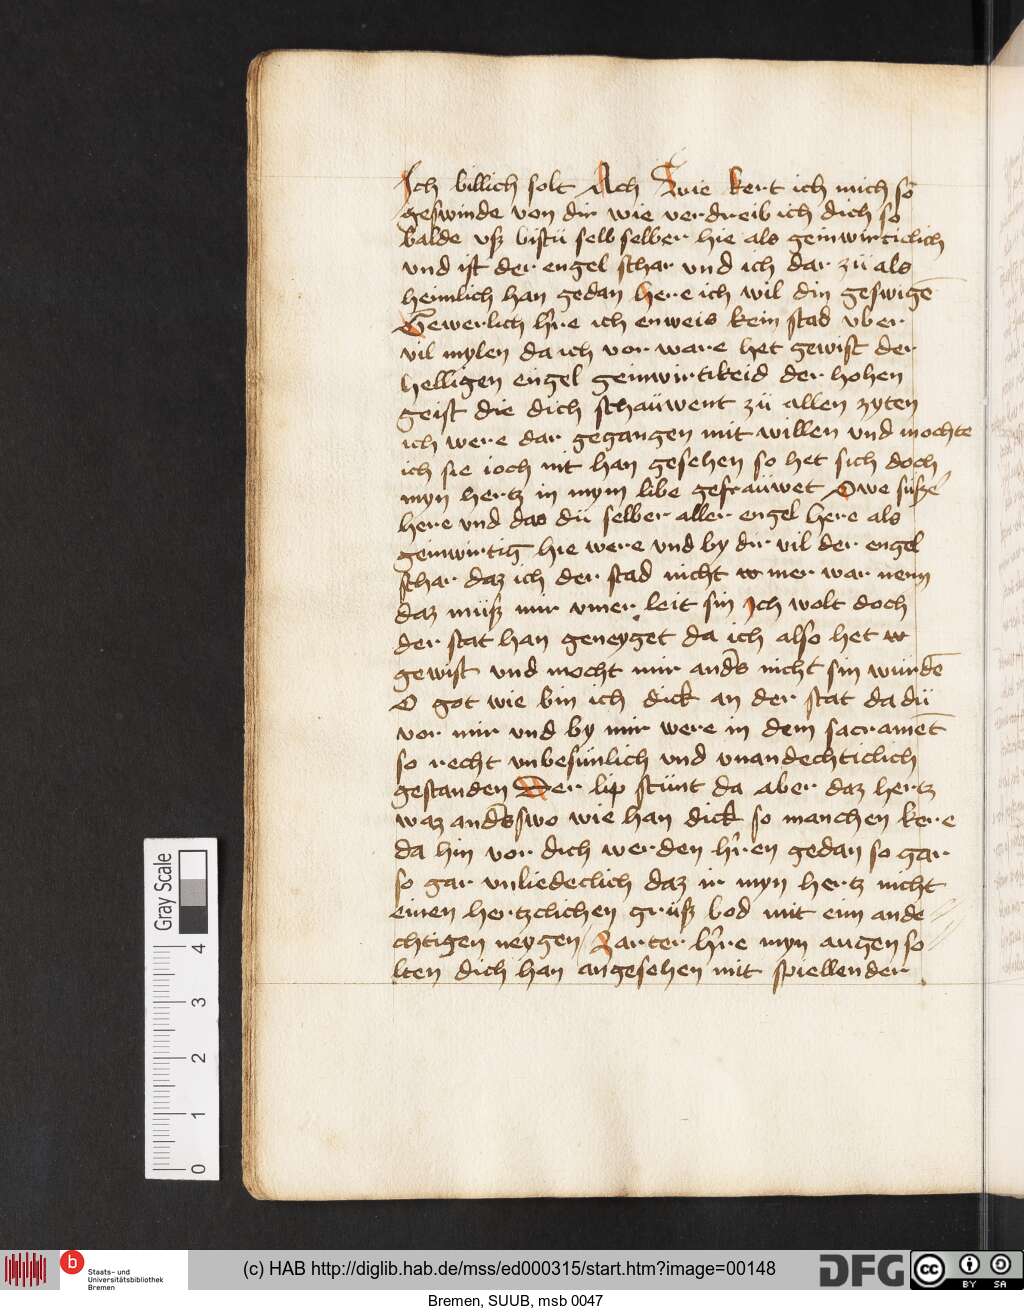 Ich billich solt Ach Swie kert ich mich so
geswinde von dir wie verdreib ich dich so
balde vß bistü selb selber hie als geinwirticlich
vnd ist der engel schar vnd ich dar zü als
heimlich han gedan here ich wil din geswige̅
Gewerlich h̅re ich enweis kein stad vber
vil mylen da ich vor ware het gewist der
helligen engel geinwirtikeid der hohen
geist die dich schaüwent zü allen zyten
ich were dar gegangen mit willen vnd mochte
ich sie ioch nit han gesehen so het sich doch
myn hertz in mym libe gefraüwet Owe süße
here vnd das dü selber aller engel here als
geinwirtig hie were vnd by dir vil der engel
schar daz ich der stad nicht mer war nem
daz müß mir vmer leit sin Ich wolt doch
der stat han geneyget da ich also het
gewist vnd mocht mir and̅s nicht sin würde̅
O got wie bin ich dick an der stat da dü
vor mir vnd by mir were in dem sacrame̅t
so recht vnbesünlich vnd vnandechticlich
gestanden Der lip stünt da aber daz hertz
waz and̅sswo wie han dick so manchen kere
da hin vor dich werden h̅ren gedan so gar
so gar vnliedeclich daz ir myn hertz nicht
einen hertzclichen grüß bod mit eim ande
chtigen neygen Zarter h̅re myn augen so
lten dich han angesehen mit spiellender
Gray Scale
4
3
2
1
0
b
Staats- und
Universitätsbibliothek
Bremen
(c) HAB http://diglib.hab.de/mss/ed000315/start.htm?image=00148
DFG
cc
BY SA
Bremen, SUUB, msb 0047